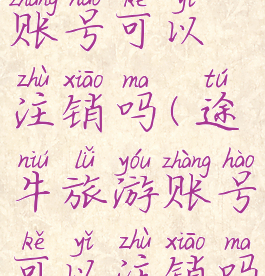 zhàng hào kě yǐ
账号可以
zhù xiāo ma tú
注销吗(途
niú lǚ yóu zhàng hào
牛旅游账号
kě yǐ zhù xiāo ma
可以注销吗